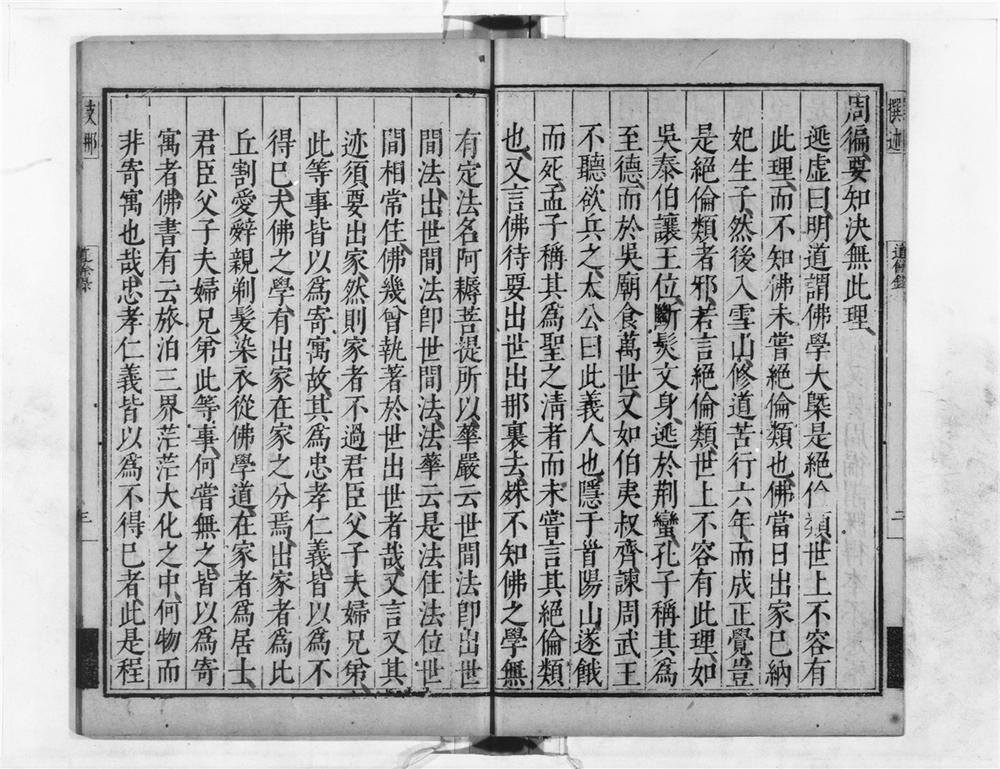 撰述
道餘錄
二
周徧、要知決無此理、
逃虛曰、明道謂佛學大槩是絕倫類、世上不容有
此理、而不知佛未嘗絕倫類也、佛當日出家已納
妃生子、然後入雪山、修道苦行六年、而成正覺、豈
是絕倫類者邪、若言絕倫類、世上不容有此理、如
吳泰伯讓王位、斷髮文身、逃於荆蠻、孔子稱其爲
至德、而於吳廟食萬世、又如伯夷叔齊、諫周武王
不聽、欲兵之、太公曰、此義人也、隱于首陽山、遂餓
而死、孟子稱其爲聖之淸者、而未嘗言其絕倫類
也、又言佛待要出世、出那裏去、殊不知佛之學、無
有定法、名阿耨菩提、所以華嚴云、世間法卽出世
間法、出世間法卽世間法、法華云、是法住法位、世
間相常住、佛幾曾執著於世出世者哉、又言又其
迹須要出家、然則家者不過君臣父子夫婦兄弟、
此等事皆以爲寄寓、故其爲忠孝仁義、皆以爲不
得已、夫佛之學、有出家在家之分焉、出家者爲比
丘、割愛辭親、剃髮染衣、從佛學道、在家者爲居士、
君臣父子夫婦兄弟此等事、何嘗無之、皆以爲寄
寓者、佛書有云、旅泊三界、茫茫大化之中、何物而
非寄寓也哉、忠孝仁義皆以爲不得已者、此是程
支那
道餘錄
三